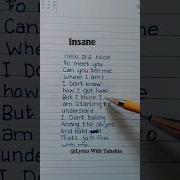 Insane
Hello it's nice
To meet you
Can you tell me
Where I am?
I Don't know
how I got here
But I think I
am starting to
understand
I Don't belong
Among the angels
And hate
That's just fine
with me.
@Lyrics With Tabshin